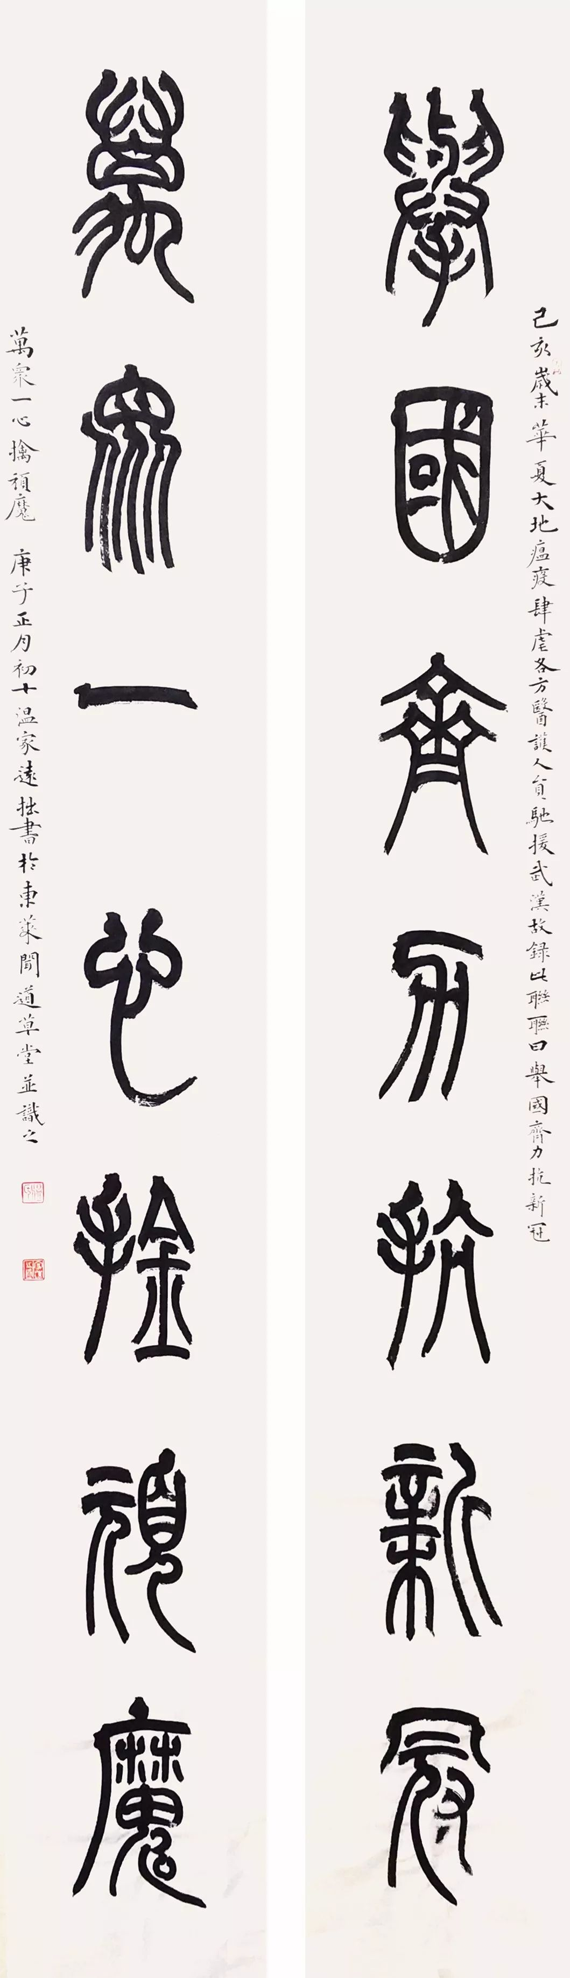 舉國齊力抗新冠
己亥歲末華夏大地瘟疫肆虐各方醫護人員馳援武漢故録此聯聯曰舉國齊力抗新冠
萬衆一心擒頑魔
萬衆一心擒頑魔 庚子正月初十温家遠拙書於東萊聞道草堂並識之